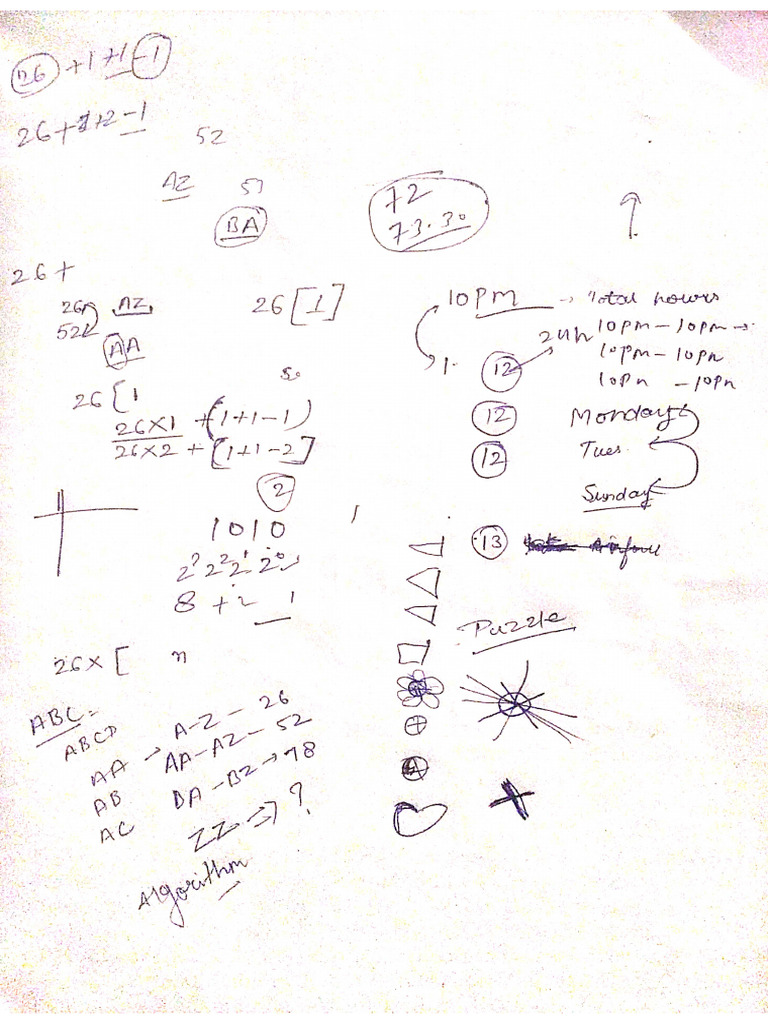 26 +1 +1 -1
26+1+2-1
52
AZ 51
BA
72
73.30
26+
26 AZ
52
AA
26[1]
26[1
26×1 +(1+1-1)
26×2 +[1+1-2]
2
1010
2³ 2² 2¹ 2⁰
8 + 2
1
26×[ n
ABC =
ABCD
AA → A-Z - 26
AB AA-AZ - 52
AC BA-BZ → 78
ZZ → ?
Algorithm
10PM → Total hours
24h 10pm - 10pm →
1. 12 10pm - 10pm
10pm - 10pm
12 Monday
12 Tues
Sunday
13
Puzzle